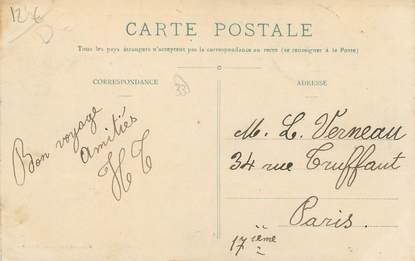 12 €
CARTE POSTALE
Tous les pays étrangers n'acceptent pas la correspondance au recto (se renseigner à la Poste)
CORRESPONDANCE
33
ADRESSE
Bon voyage
amitiés
HT
M. L. Verneau
34 rue Truffaut
Paris.
17 ième